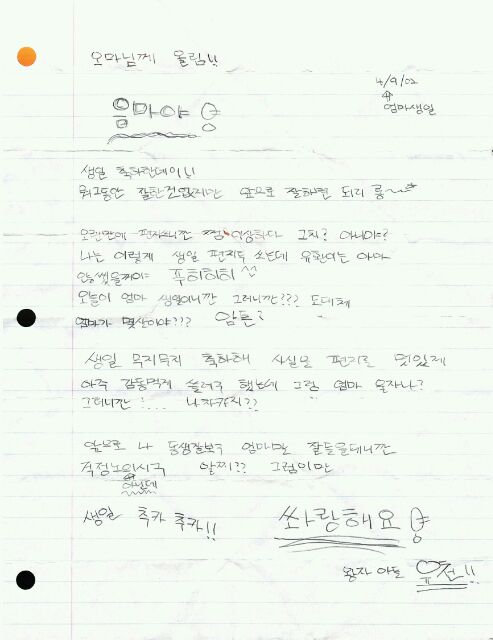 오마님께 올림!!
4/9/02
엄마생일
음마야 용
생일 축하한데이!!
뭐그동안 잘한건없지만 앞으로 잘하면 되리 룽~
오랜만에 편지쓰니깐 쫌 이상하다 그치? 아니야?
나는 이렇게 생일 편지두 쓰는데 유환이는 아마
안썼을꺼야= 푸히히히 ^^
오늘이 엄마 생일이니깐 그러니깐??? 도대체
엄마가 몇살이야??? 암튼?
생일 무지무지 축하해 사실은 편지를 멋있게
아주 감동먹게 쓸려구 했는데 그럼 엄마 울자나?
그러니깐 :... 나 착하지??
앞으로 나 동생잘보구 엄마말 잘들을테니깐
걱정노으시구 알찌?? 그럼이만
아닌데
생일 추카 추카!!
쏴랑해요 용
왕자 아들